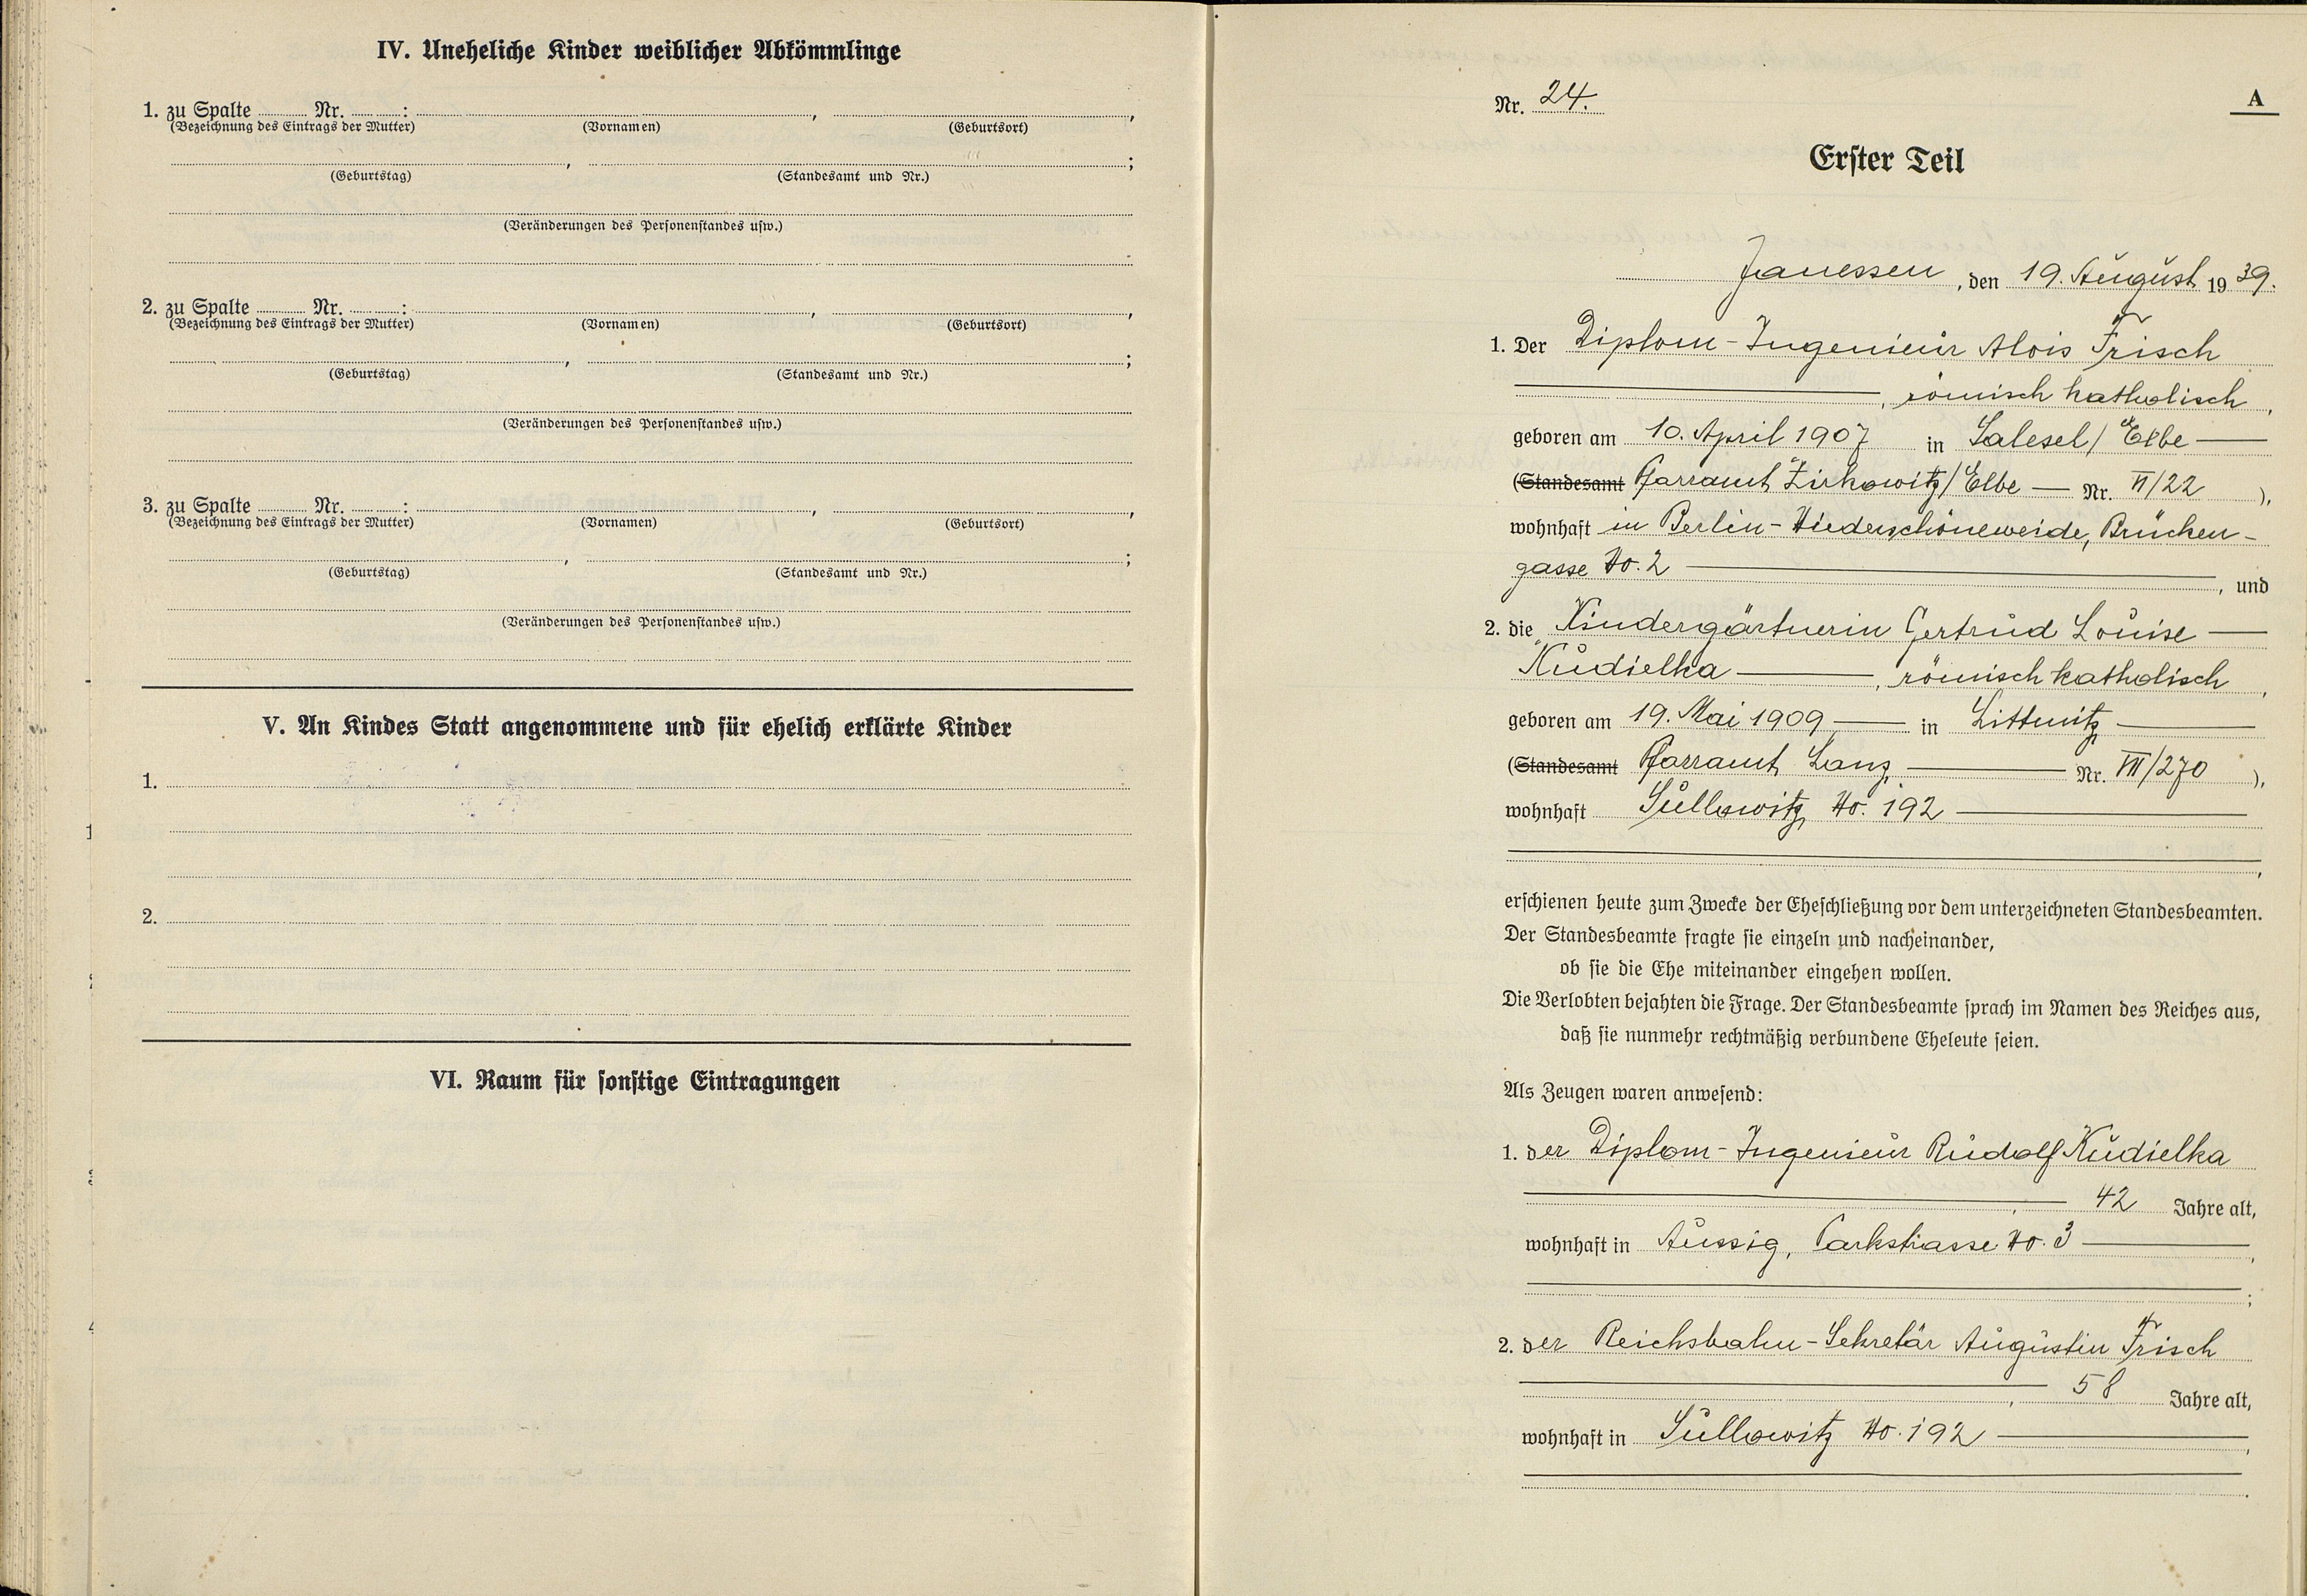 IV. Uneheliche Kinder weiblicher Abkömmlinge
1. zu Spalte ........ Nr. ........: ........, ........,
(Bezeichnung des Eintrags der Mutter) (Vornamen) (Geburtsort)
........, ........;
(Geburtstag) (Standesamt und Nr.)
(Veränderungen des Personenstandes usw.)
2. zu Spalte ........ Nr. ........: ........, ........,
(Bezeichnung des Eintrags der Mutter) (Vornamen) (Geburtsort)
........, ........;
(Geburtstag) (Standesamt und Nr.)
(Veränderungen des Personenstandes usw.)
3. zu Spalte ........ Nr. ........: ........, ........,
(Bezeichnung des Eintrags der Mutter) (Vornamen) (Geburtsort)
........, ........;
(Geburtstag) (Standesamt und Nr.)
(Veränderungen des Personenstandes usw.)
V. An Kindes Statt angenommene und für ehelich erklärte Kinder
1.
2.
VI. Raum für sonstige Eintragungen
Nr. 24.
A
Erster Teil
Janessen, den 19. August 1939.
1. Der Diplom-Ingenieur Alois Frisch
, römisch katholisch,
geboren am 10. April 1907 in Salesel/Elbe
(Standesamt Pfarramt Zirkowitz/Elbe — Nr. VI/22),
wohnhaft in Berlin-Niederschöneweide, Brücken-
gasse No. 2, und
2. die Kindergärtnerin Gertrud Louise
Kudielka, römisch katholisch,
geboren am 19. Mai 1909 in Littmitz
(Standesamt Pfarramt Lanz Nr. VII/270),
wohnhaft Sullowitz No. 192
,
erschienen heute zum Zwecke der Eheschließung vor dem unterzeichneten Standesbeamten.
Der Standesbeamte fragte sie einzeln und nacheinander,
ob sie die Ehe miteinander eingehen wollen.
Die Verlobten bejahten die Frage. Der Standesbeamte sprach im Namen des Reiches aus,
daß sie nunmehr rechtmäßig verbundene Eheleute seien.
Als Zeugen waren anwesend:
1. der Diplom-Ingenieur Rudolf Kudielka
, 42 Jahre alt,
wohnhaft in Aussig, Parkstrasse No. 3,
;
2. der Reichsbahn-Sekretär Augustin Frisch
, 58 Jahre alt,
wohnhaft in Sullowitz No. 192,
.